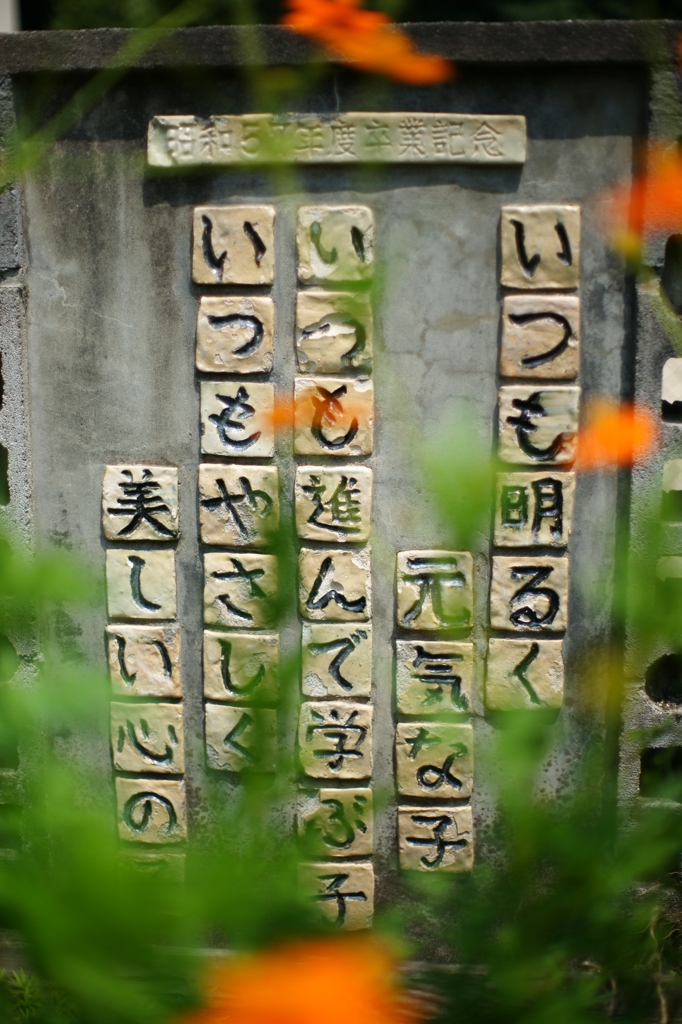 昭和57年度卒業記念
いつも明るく
元気な子
いつも進んで学ぶ子
いつもやさしく
美しい心の